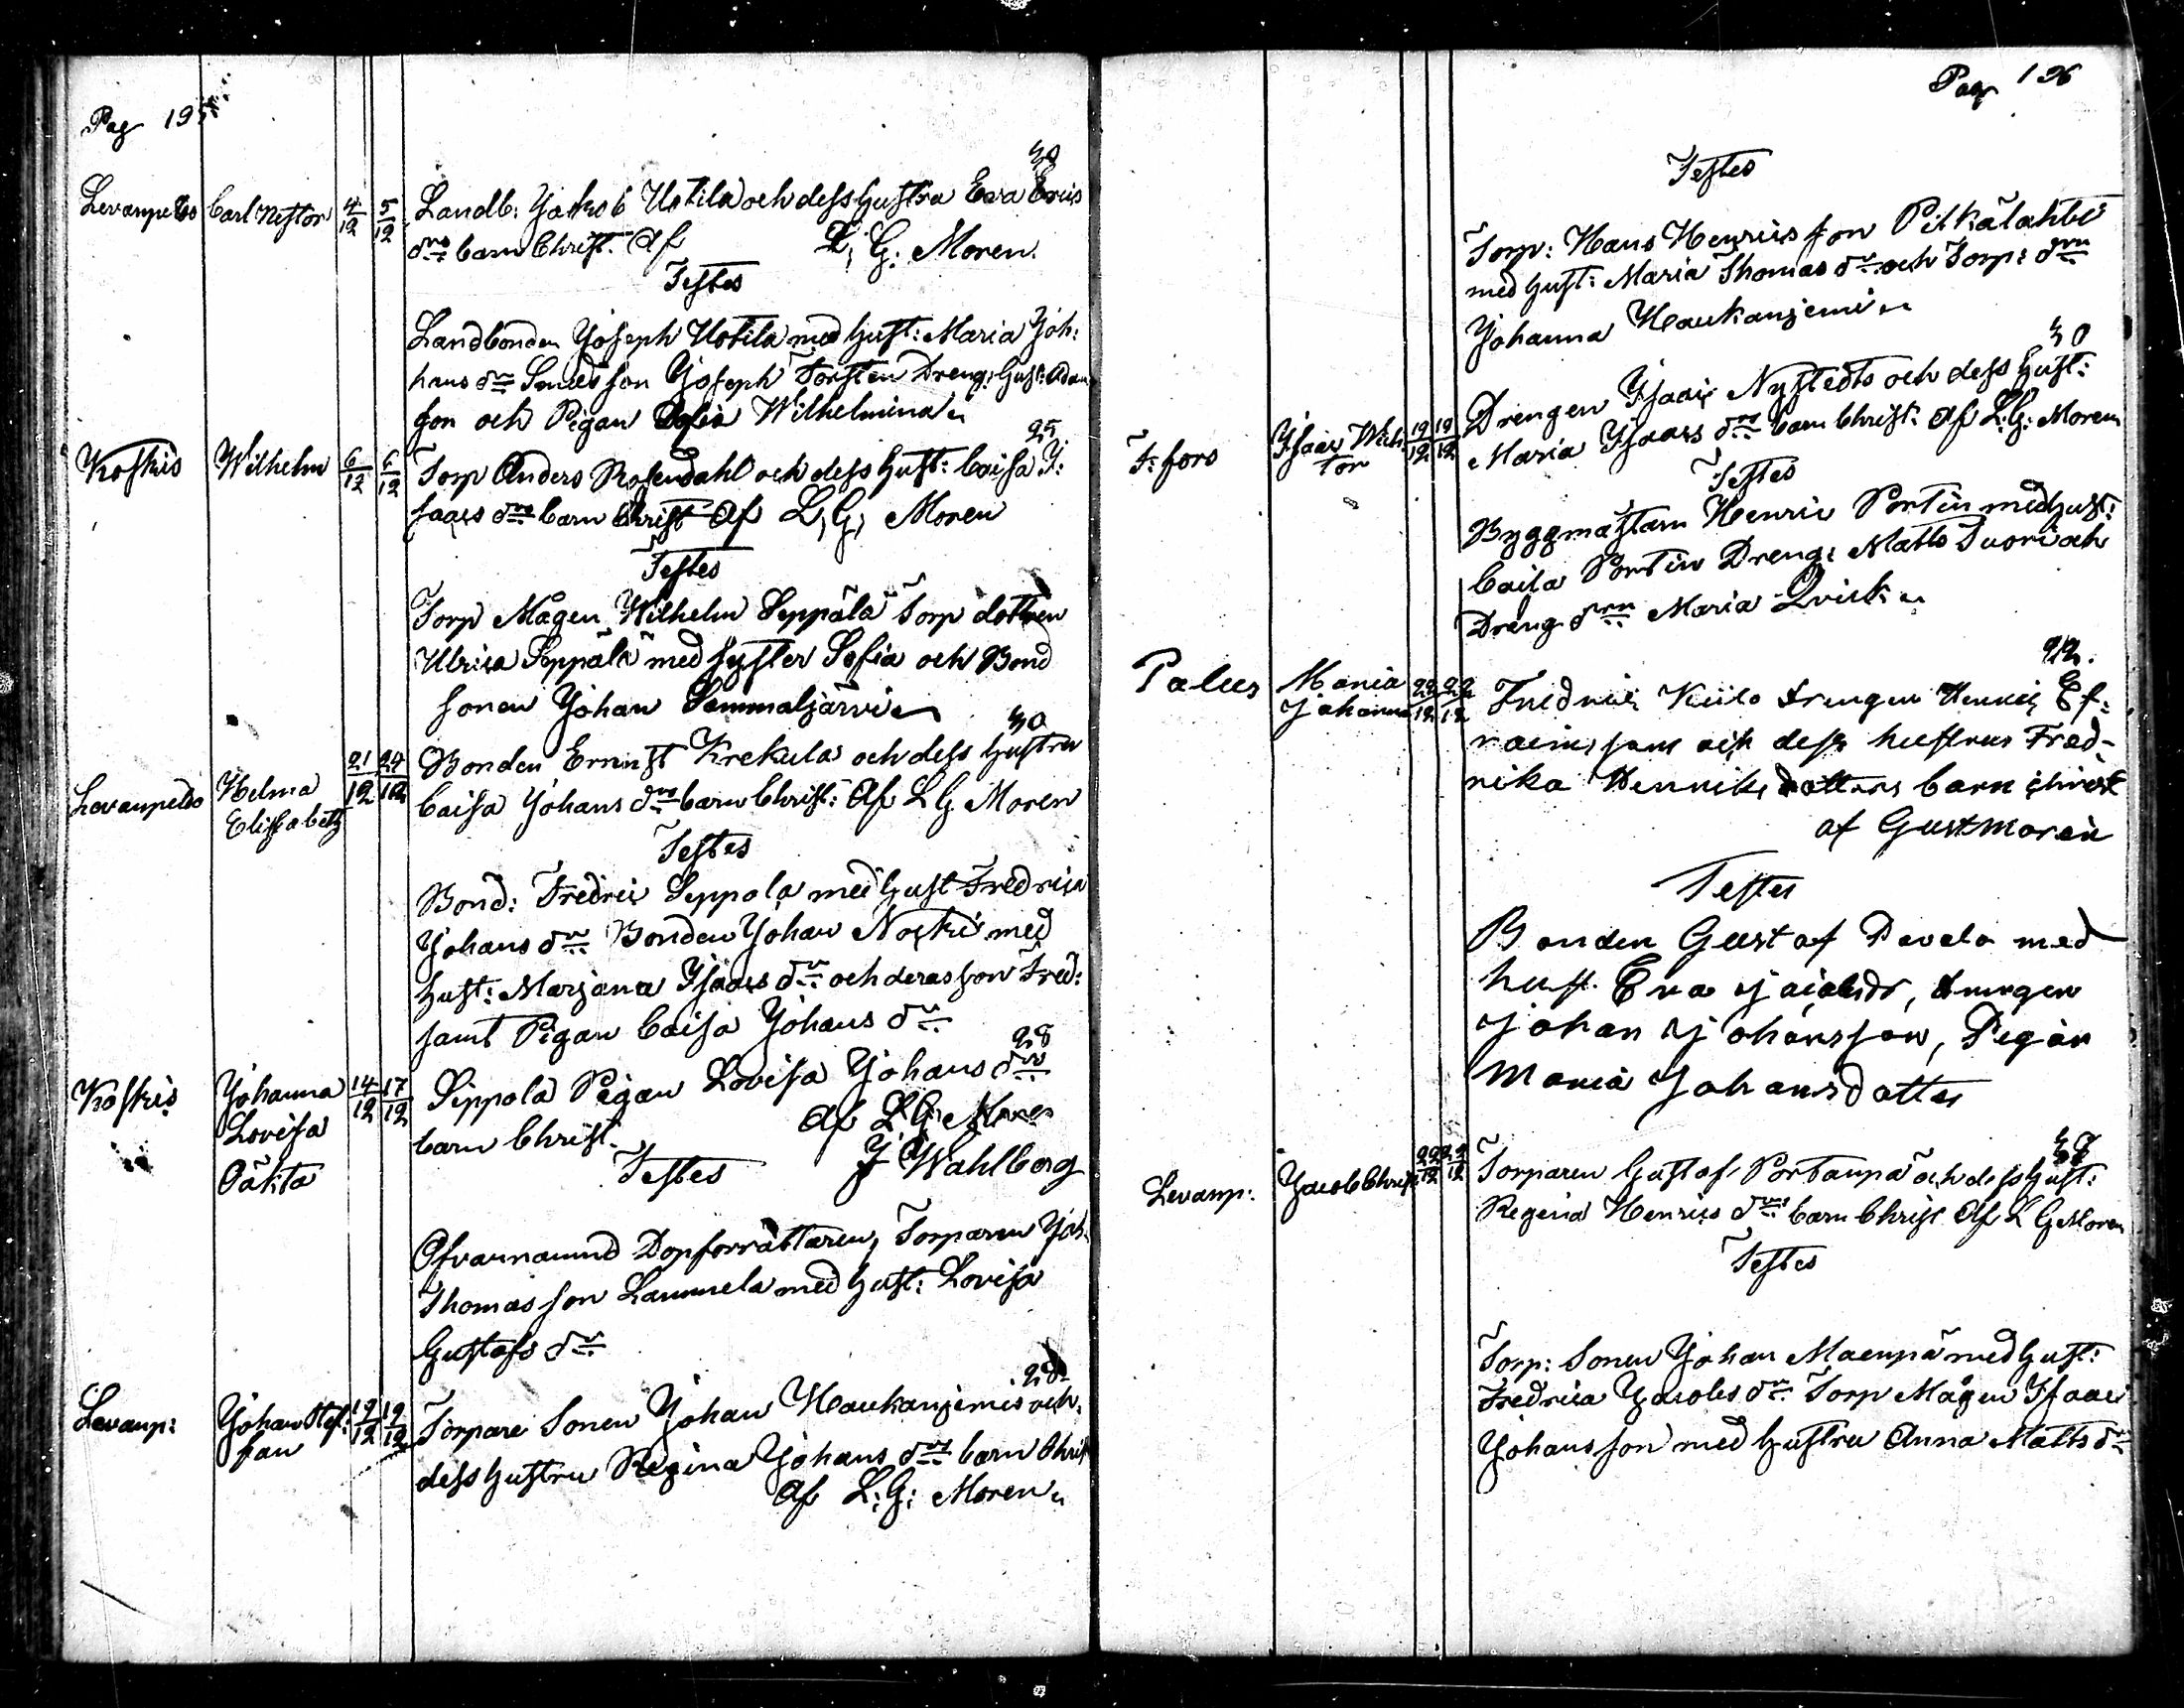 Pag 195
30
Levanpelto Carl Nestor 4/12 5/12 Landb: Jakob Uotila och dess hustru Eva Erics
drs barn Christ. Af L: G: Moren.
Testes
Landbonden Joseph Uotila med hust: Maria Joh:
hans dr Smedsson Joseph Torsten Dreng: Gust: Adam
son och Pigan Wilhelmina
25
Koskis Wilhelm 6/12 6/12 Torp Anders Rosendahl och dess hust: Caisa I:
saacs drs barn Christ Af L: G: Moren
Testes
Torp Mågen Wilhelm Seppälä Torp dottren
Ulrica Seppälä med syster Sofia och Bond
sonen Johan Sammaljärvi
30
Levanpelto Helma Elisabeth 21/12 24/12 Bonden Ernnst Krekula och dess hustru
Caisa Johans drs barn Christ: Af L G Moren
Testes
Bond: Fredric Seppola med hust Fredrica
Johans dr Bonden Johan Noski med
hust: Marjana Isaacs dr och deras son Fred:
samt Pigan Caisa Johans dr
28
Koskis Johanna Lovisa Oäkta 14/12 17/12 Sippola Pigan Lovisa Johans drs
barn Christ. Af L G: Moren
Testes J Wahlberg
Ofvannämnd Dopförrättaren, Torparen Joh.
Thomas son Lammela med hust: Lovisa
Gustafs dr
28
Levanp: Johan Stef: fan 19/12 19/12 Torpare Sonen Johan Haukanjemis och
dess hustru Regina Johans drs barn Christ
Af L: G: Moren
Pag 196
Testes
Torp: Hans Henrics son Pitkälahti
med hust: Maria Thomas dr och Torp: drn
Johanna Haukanjemi
30
Drengen Isaac Nystedts och dess hust:
F:fors Isaac Wich: tor 19/12 19/12 Maria Isaacs drs barn Christ: Af L: G: Moren
Testes
Byggmästarn Henric Portin med hust:
Caisa Portin Dreng: Matts Tuori och
Dreng drn Maria Qvick
22.
Palus Maria Johanna 22/12 22/12 Fredric Kiilo drengen Henric Ef:
raims sons och dess hustrus Fred-
rika Henriksdotters barn christ
af Gust Moren
Testes
Bonden Gustaf Pavela med
hust. Eva Jacobsdr, drengen
Johan Johansson, Pigan
Maria Johansdotter
37
Levanp: Jacob Christ: 22/12 22/12 Torparen Gustaf Portanpä och dess hust:
Regina Henrics drs barn Christ Af L G Moren
Testes
Torp: Sonen Johan Maenpä med hust:
Fredrica Jacobs dr Torp Mågen Isaac
Johansson med hustru Anna Matts dr